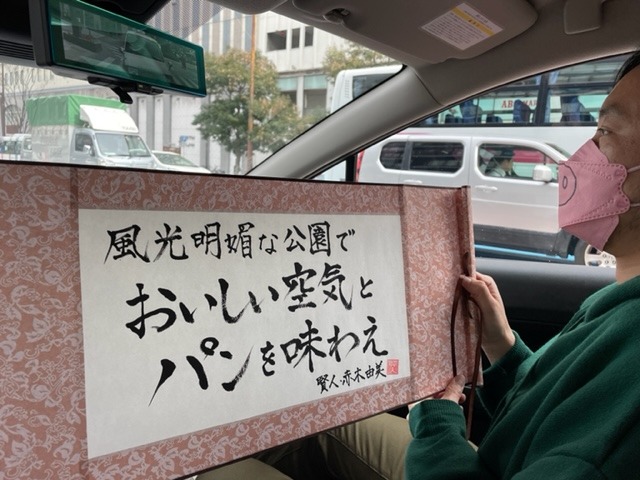 風光明媚な公園で
おいしい空気と
パンを味わえ
賢人・赤木由美